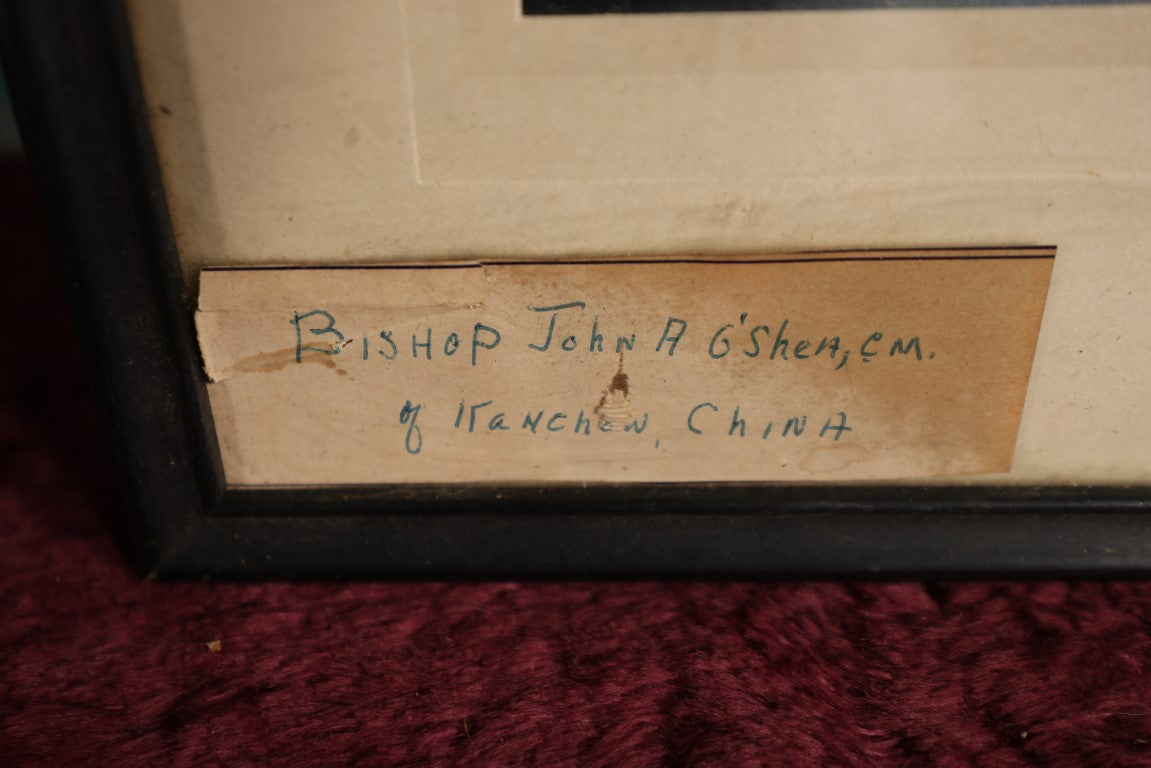 Bishop John A O'Shea, C.M.
of Kanchow, China